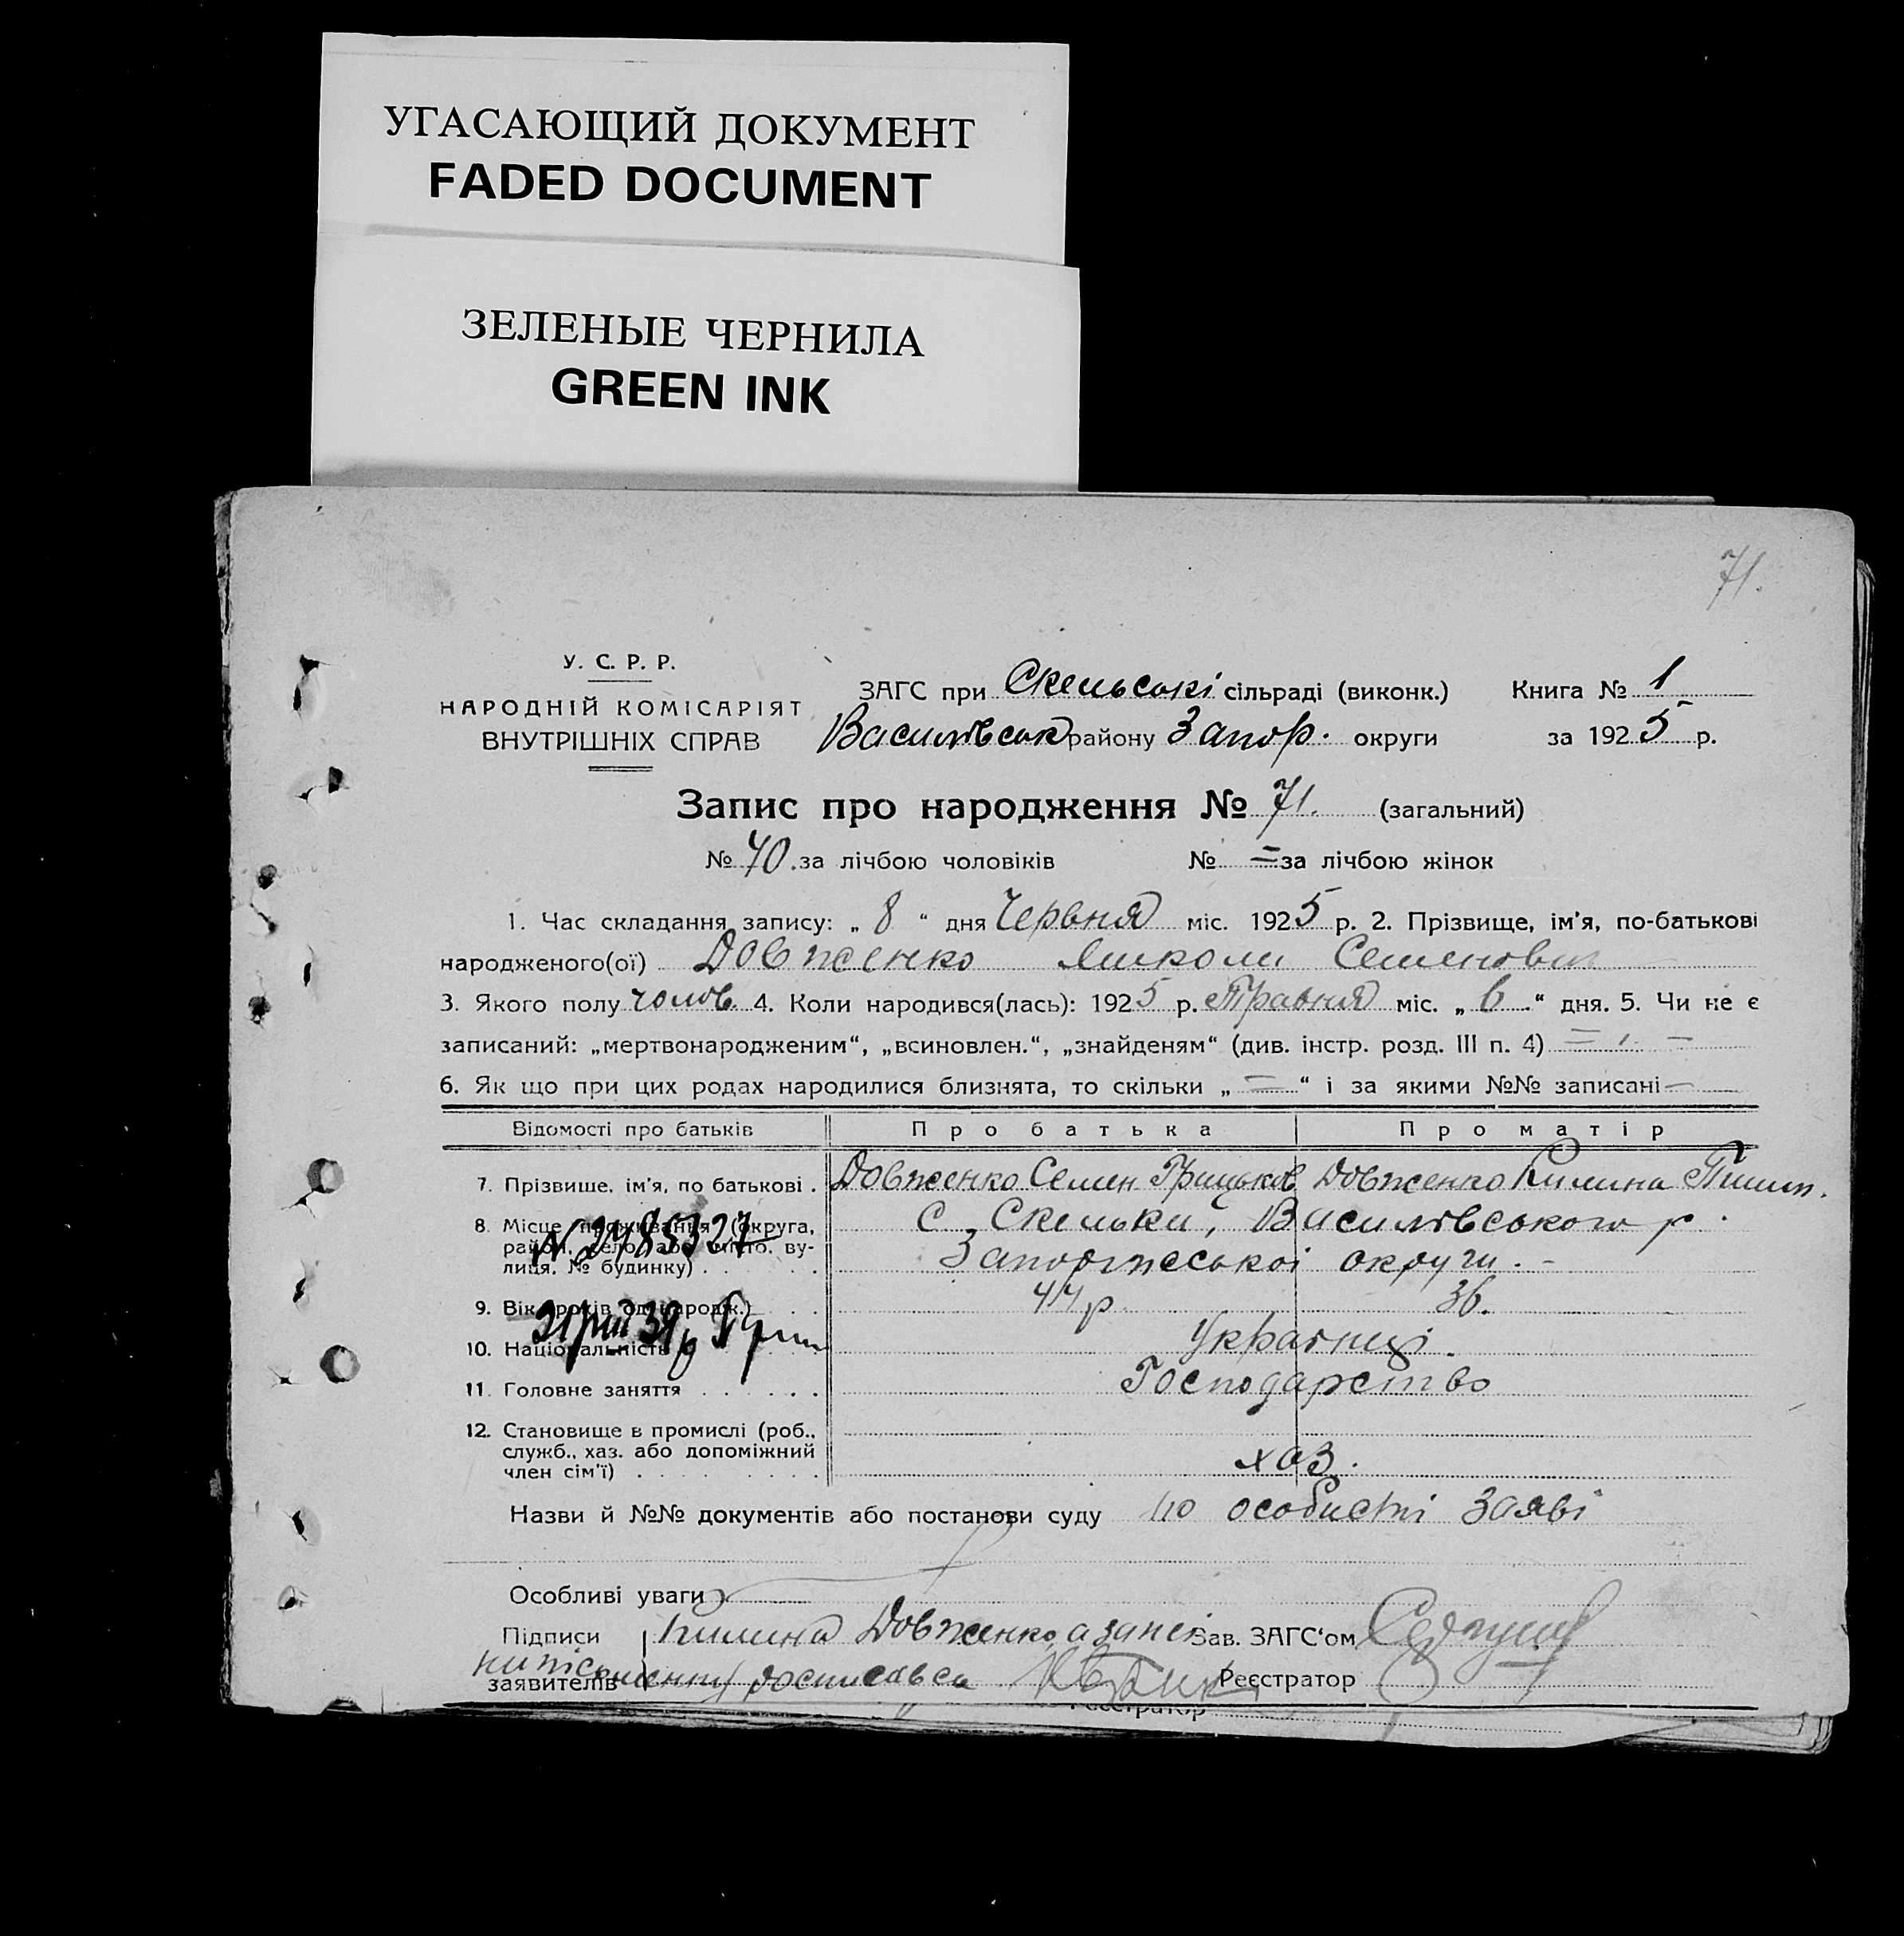 УГАСАЮЩИЙ ДОКУМЕНТ
FADED DOCUMENT
ЗЕЛЕНЫЕ ЧЕРНИЛА
GREEN INK
71.
У. С. Р. Р.
НАРОДНІЙ КОМІСАРІЯТ
ВНУТРІШНІХ СПРАВ
ЗАГС при Скельскі сільраді (виконк.) Книга № 1
Василівськ району Запор. округи за 1925 р.
Запис про народження № 71. (загальний)
№ 40. за лічбою чоловіків № = за лічбою жінок
1. Час складання запису: „ 8 “ дня Червня міс. 1925 р. 2. Прізвище, ім'я, по-батькові
народженого(ої) Довженко Миколи Семенович
3. Якого полу чолов. 4. Коли народився(лась): 1925 р. Травня міс. „ 6 “ дня. 5. Чи не є
записаний: „мертвонародженим“, „всиновлен.“, „знайденям“ (див. інстр. розд. III п. 4) = -
6. Як що при цих родах народилися близнята, то скільки „ = “ і за якими №№ записані -
Відомості про батьків Про батька Про матір
7. Прізвище, ім'я, по батькові . Довженко Семен Грицьков Довженко Килина Пилип.
8. Місце проживання (округа, район, село або місто, вулиця, № будинку) . . . с. Скельки, Василівського р.
Запорожської округи. -
№ 2485327
9. Вік (років од народж.) . . 44 р 36.
10. Національність Українці.
11. Головне заняття . . . . . . Господарство
12. Становище в промислі (роб.,
служб., хаз. або допоміжний
член сім'ї) . . . . . . . . . хаз.
Назви й №№ документів або постанови суду по особисті заяві
Особливі уваги
Підписи Килина Довженко а за неї Зав. ЗАГС‘ом
заявителів неписьменну росписався Реєстратор
Реєстратор